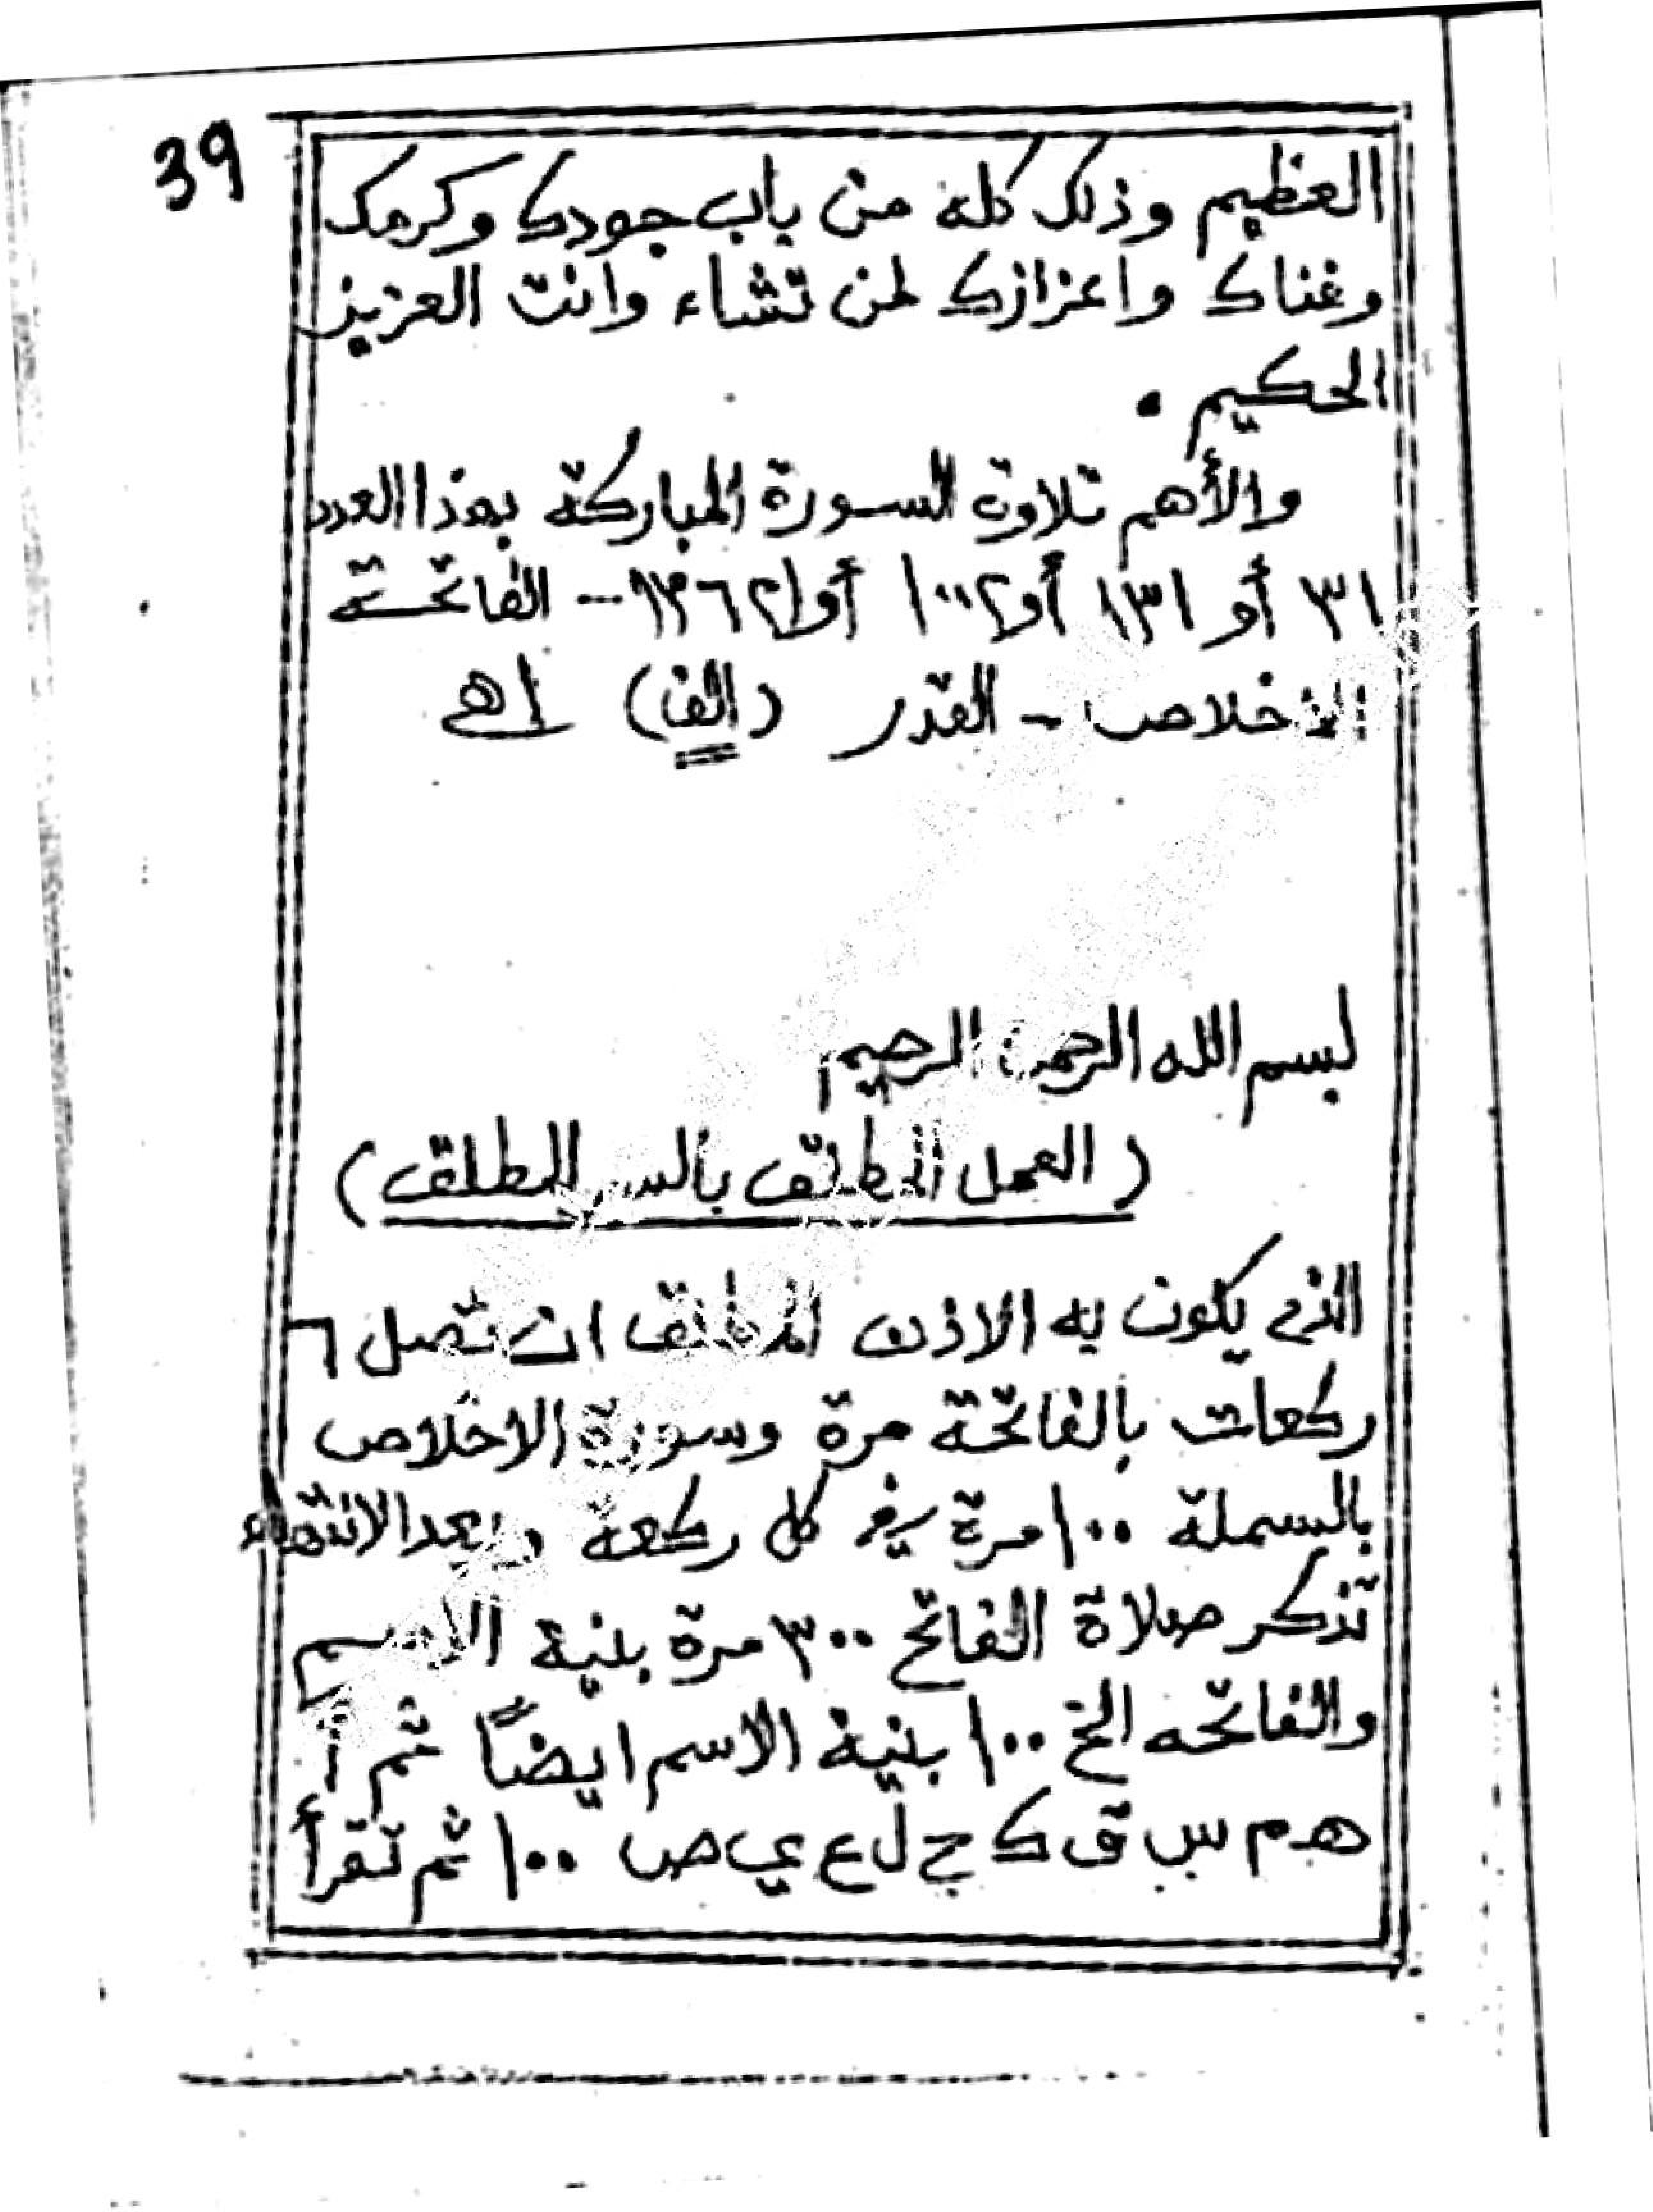 39
العظيم وذلك كله من باب جودك وكرمك
وغناك واعزازك لمن تشاء وانت العزيز
الحكيم .
والأهم تلاوة السورة المباركة بهذا العدد
٣١ أو ١٣١ أو ١٠٠٢ أو -- الفاتحة
الاخلاص - القدر (الف) اهـ
بسم الله الرحمن الرحيم
(العمل المطلق بالسر المطلق)
الذي يكون به الاذن المطلق ان تصل ٦
ركعات بالفاتحة مرة وسورة الاخلاص
بالبسملة ١٠٠ مرة في كل ركعة وبعد الانتهاء
تذكر صلاة الفاتح ٣٠٠ مرة بنية الاسم
والفاتحه الخ ١٠٠ بنية الاسم ايضاً ثم أ
هـ م س ق ك ح ل ع ي ص ١٠٠ ثم تقرأ